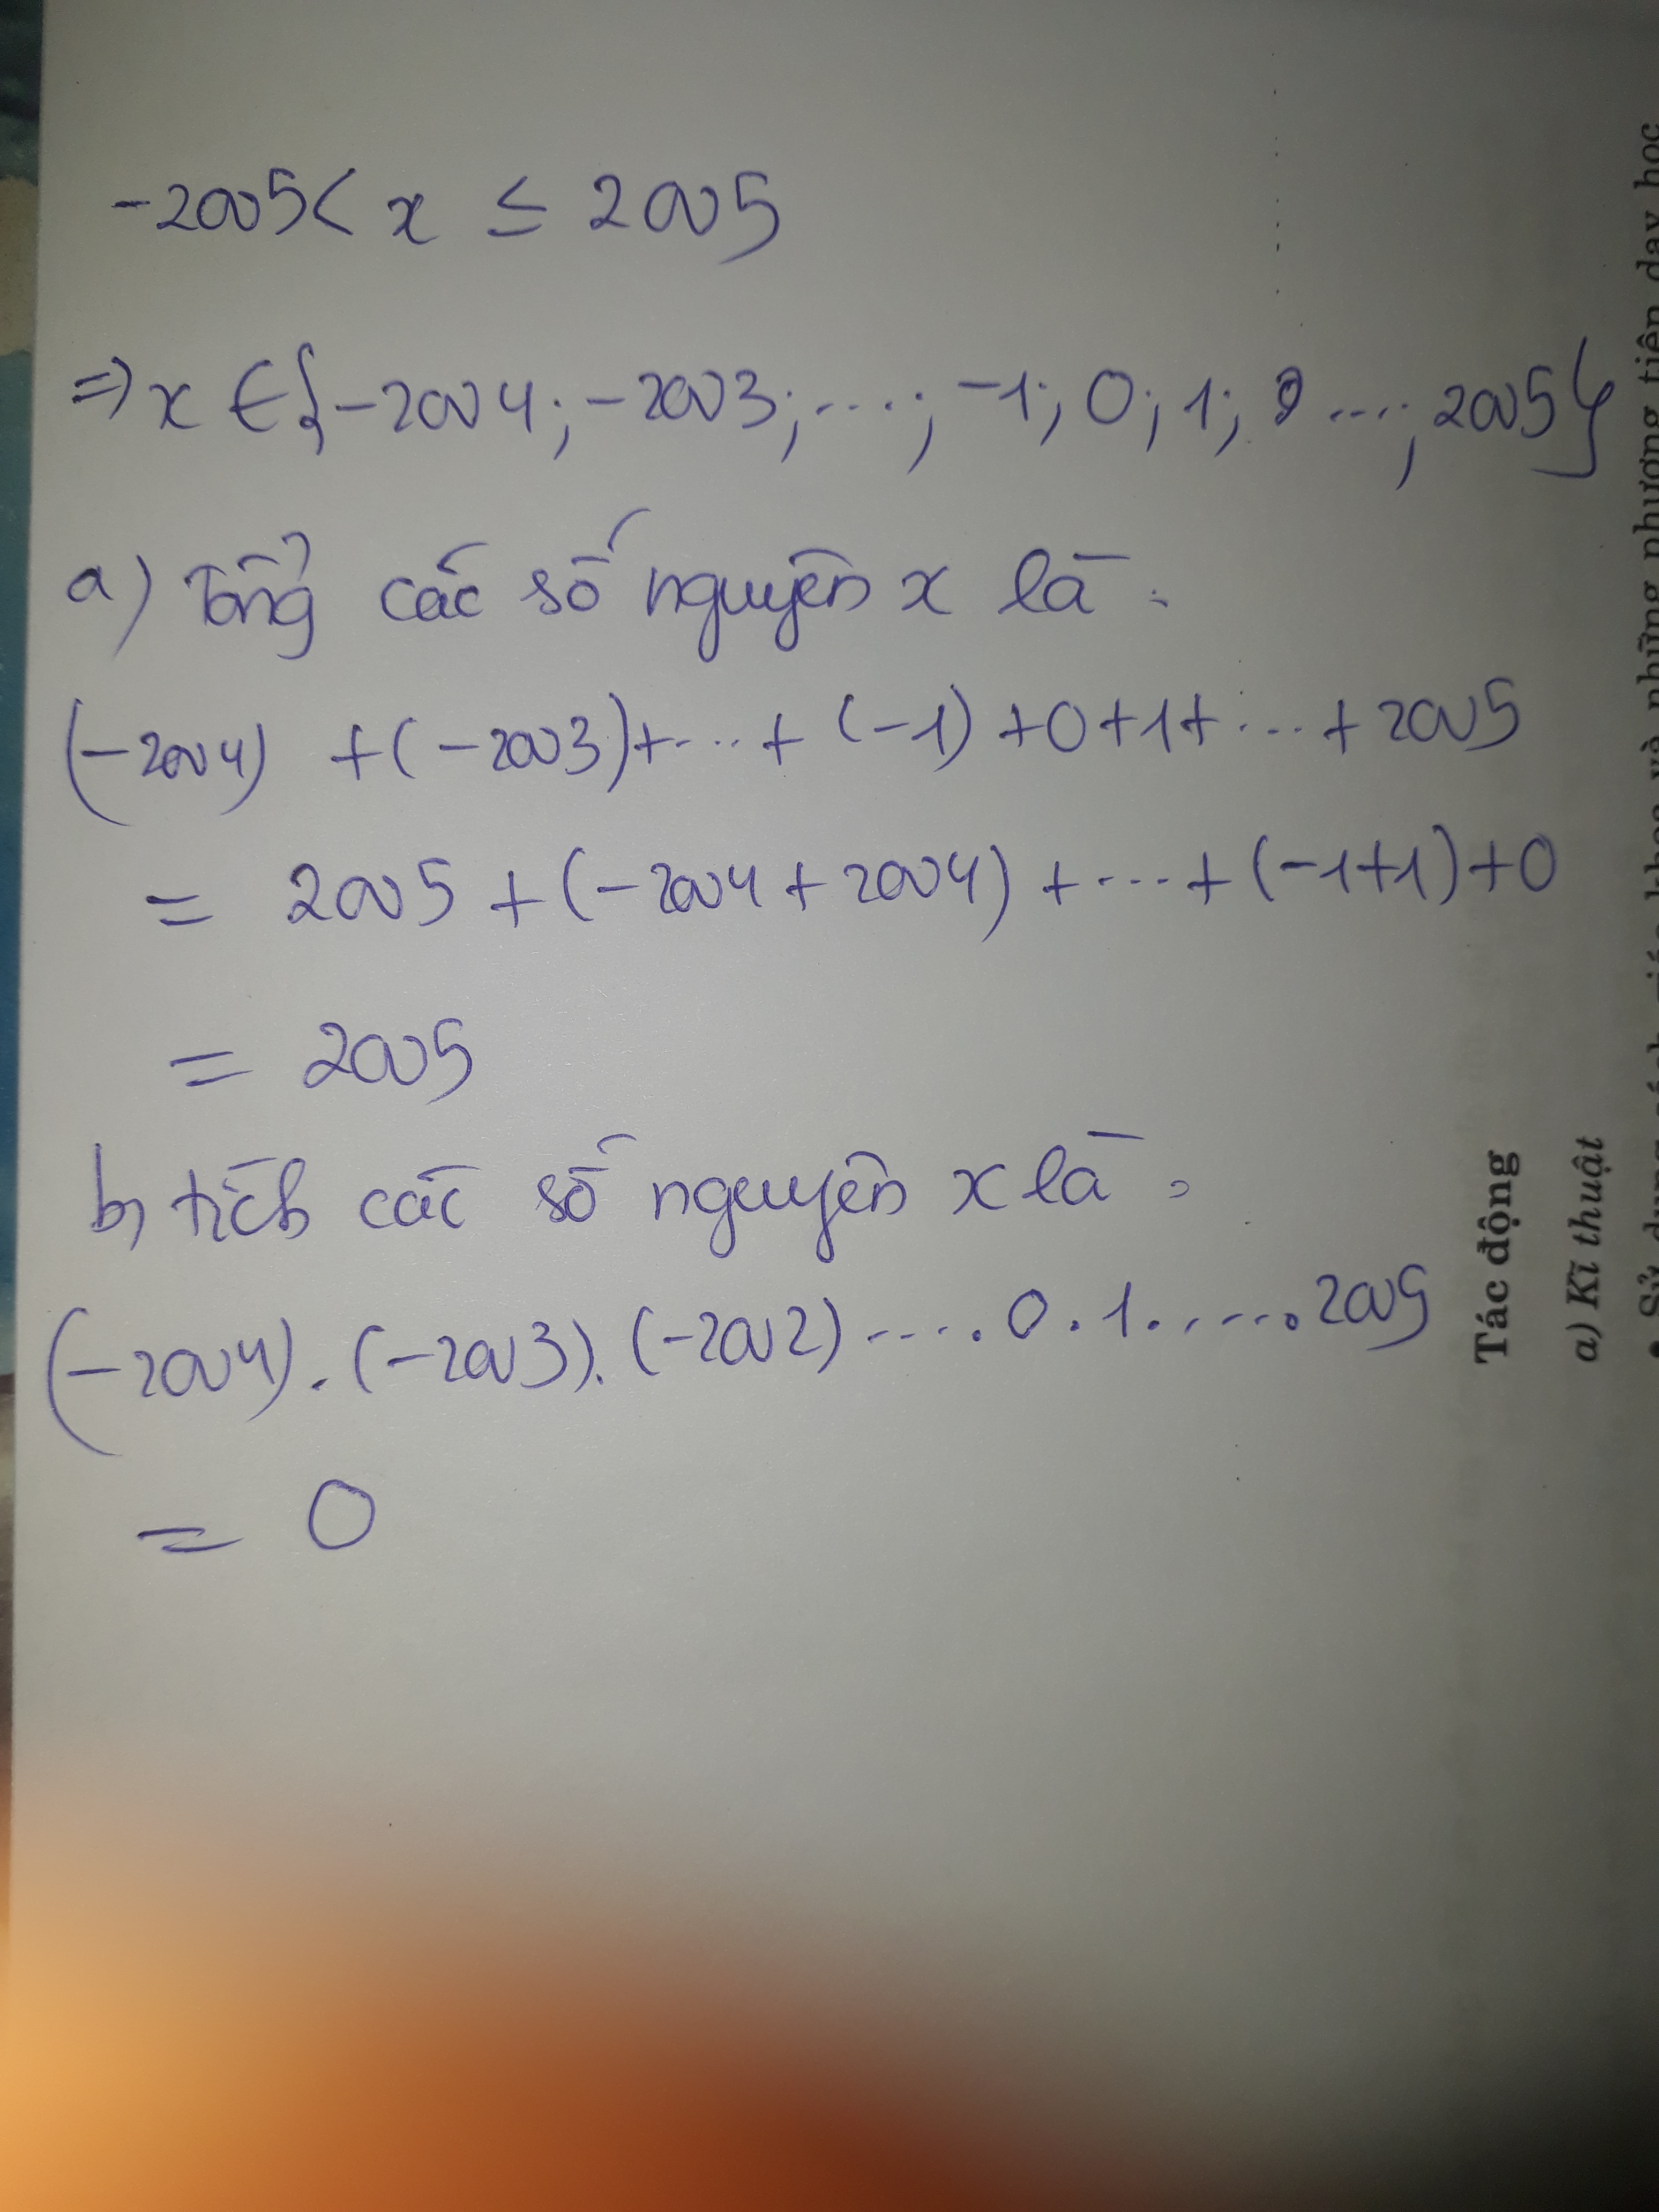 -2005 < x ≤ 2005
⇒ x ∈ {-2004; -2003; ....; -1; 0; 1; ...; 2005}
a) Tổng các số nguyên x là:
(-2004) + (-2003) + ... + (-1) + 0 + 1 + ... + 2005
= 2005 + (-2004 + 2004) + ... + (-1 + 1) + 0
= 2005
b) tích các số nguyên x là:
(-2004) . (-2003) . (-2002) ..... 0 . 1 ...... 2005
= 0
Tác động
a) Kĩ thuật